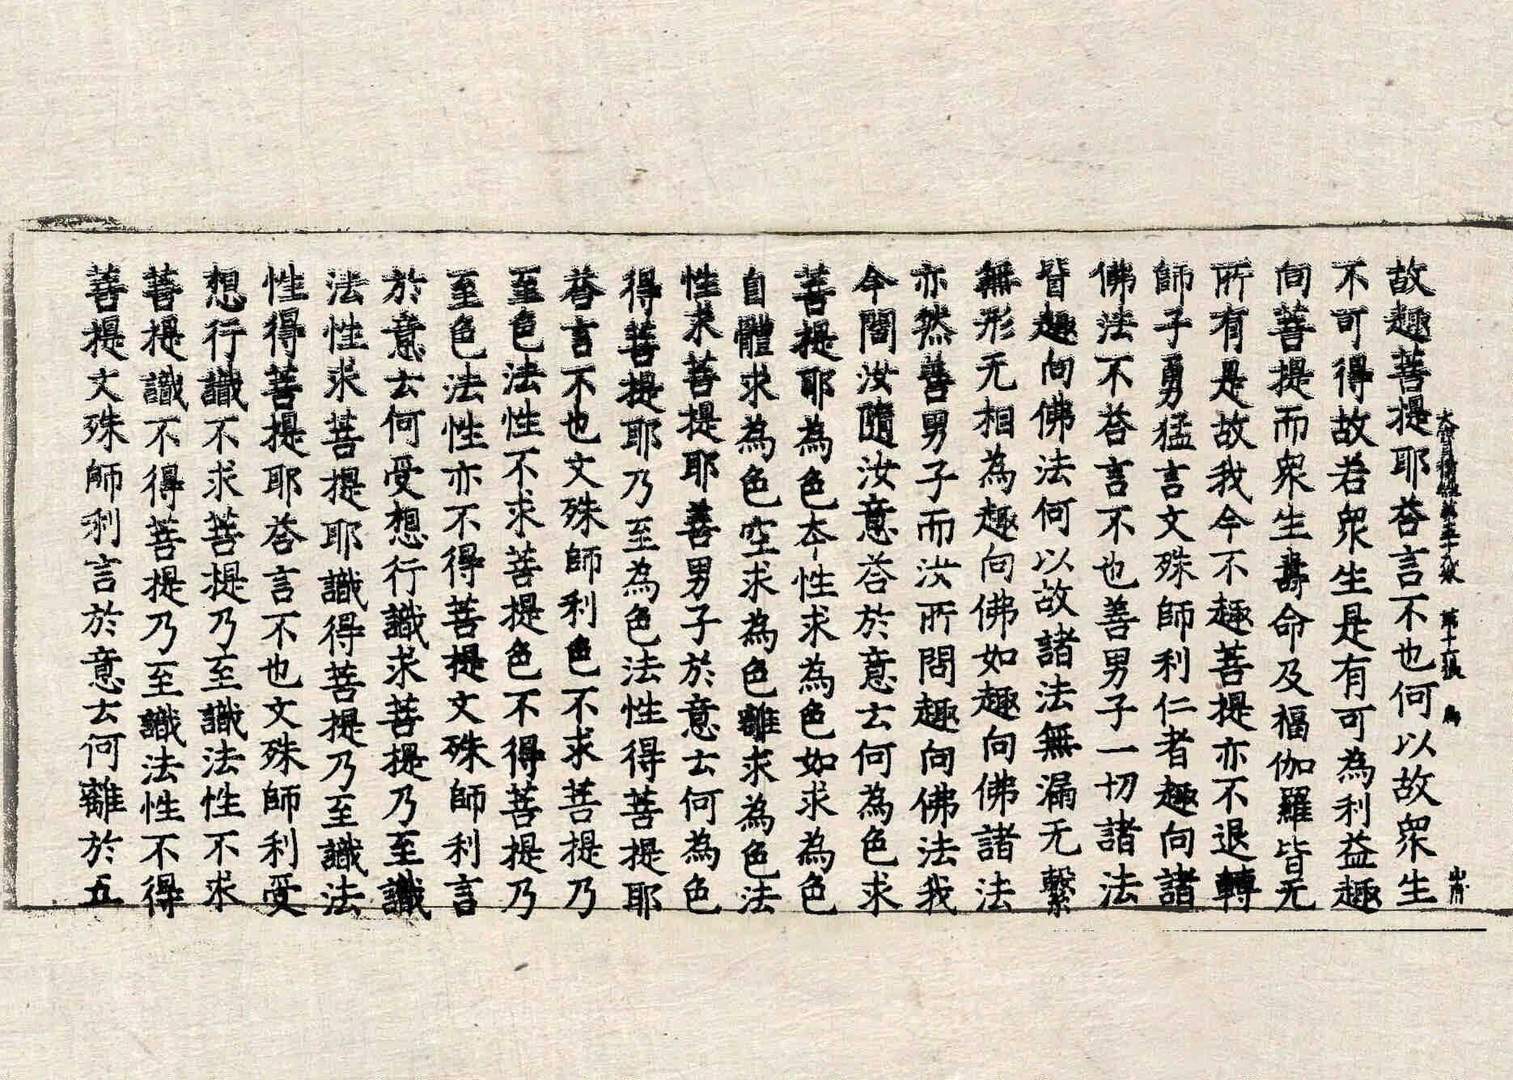 大寶積經第五十九 第十六張 鳥
故趣菩提耶荅言不也何以故衆生
不可得故若衆生是有可為利益趣
向菩提而衆生壽命及福伽羅皆无
所有是故我今不趣菩提亦不退轉
師子勇猛言文殊師利仁者趣向諸
佛法不荅言不也善男子一切諸法
皆趣向佛法何以故諸法無漏无繫
無形无相為趣向佛如趣向佛諸法
亦然善男子而汝所問趣向佛法我
今問汝隨汝意荅於意云何為色求
菩提耶為色本性求為色如求為色
自體求為色空求為色離求為色法
性求菩提耶善男子於意云何為色
得菩提耶乃至為色法性得菩提耶
荅言不也文殊師利色不求菩提乃
至色法性不求菩提色不得菩提乃
至色法性亦不得菩提文殊師利言
於意云何受想行識求菩提乃至識
法性求菩提耶識得菩提乃至識法
性得菩提耶荅言不也文殊師利受
想行識不求菩提乃至識法性不求
菩提識不得菩提乃至識法性不得
菩提文殊師利言於意云何離於五